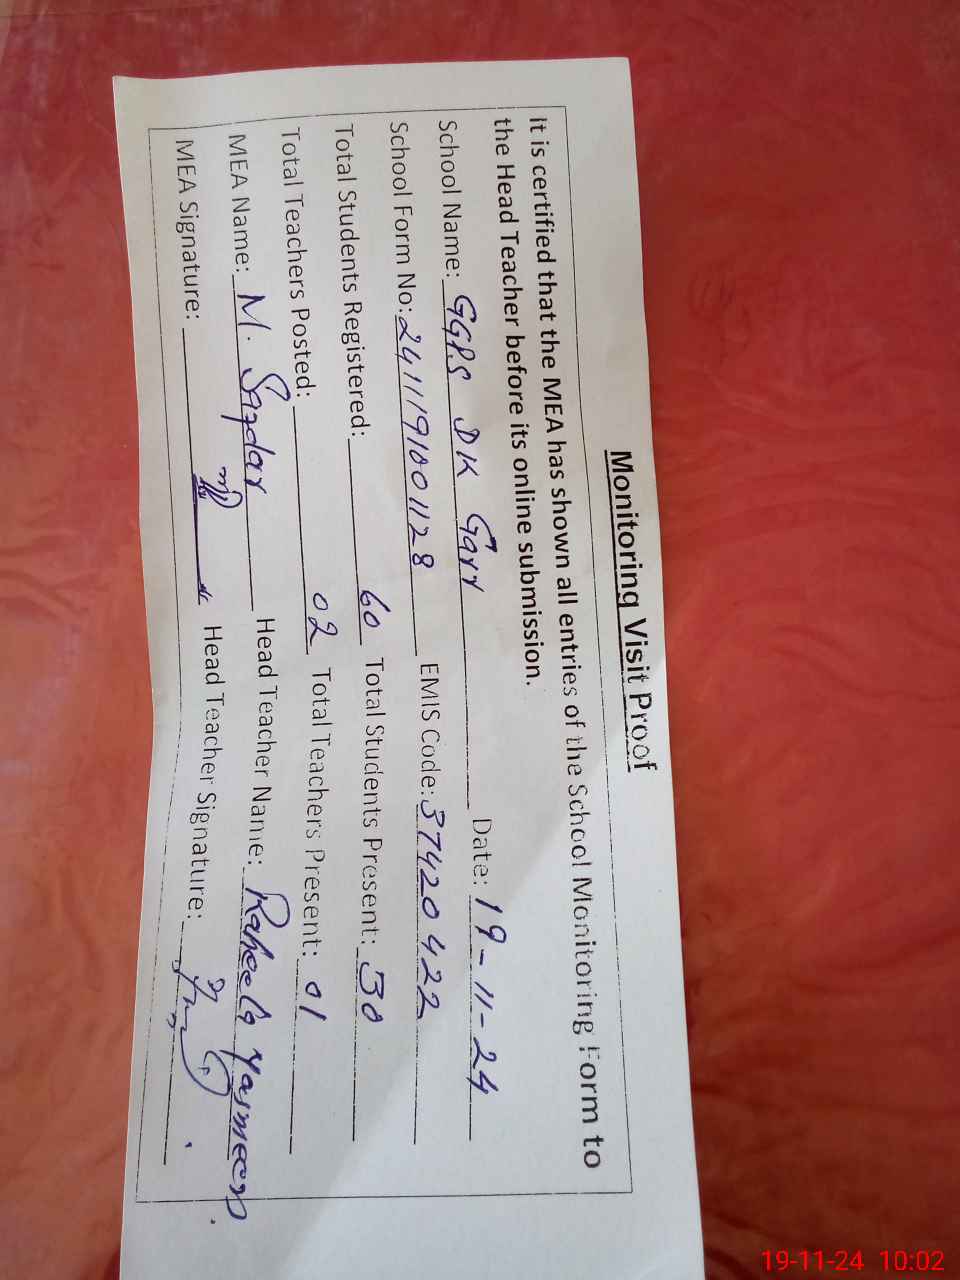 Monitoring Visit Proof
It is certified that the MEA has shown all entries of the School Monitoring Form to
the Head Teacher before its online submission.
School Name: GGPS DK Garr Date: 19-11-24
School Form No: 2411191001128 EMIS Code: 37420422
Total Students Registered: 60 Total Students Present: 50
Total Teachers Posted: 02 Total Teachers Present: 01
MEA Name: M. Safdar Head Teacher Name: Raheela Yasmeen
MEA Signature: Head Teacher Signature:
19-11-24 10:02